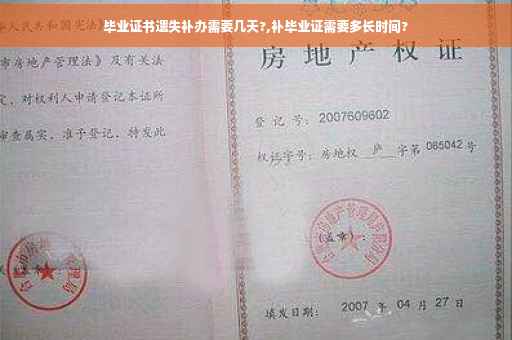 毕业证书遗失补办需要几天?,补毕业证需要多长时间?
人民共和国宪法》
市房地产管理法》及有关法
定，对权利人申请登记本证所
审查属实，准予登记，特发此
房地产权证
登记号：2007609602
权证字号：房地权 庐 字第 065042 号
(盖章)：
填发日期：2007 年 04 月 27 日